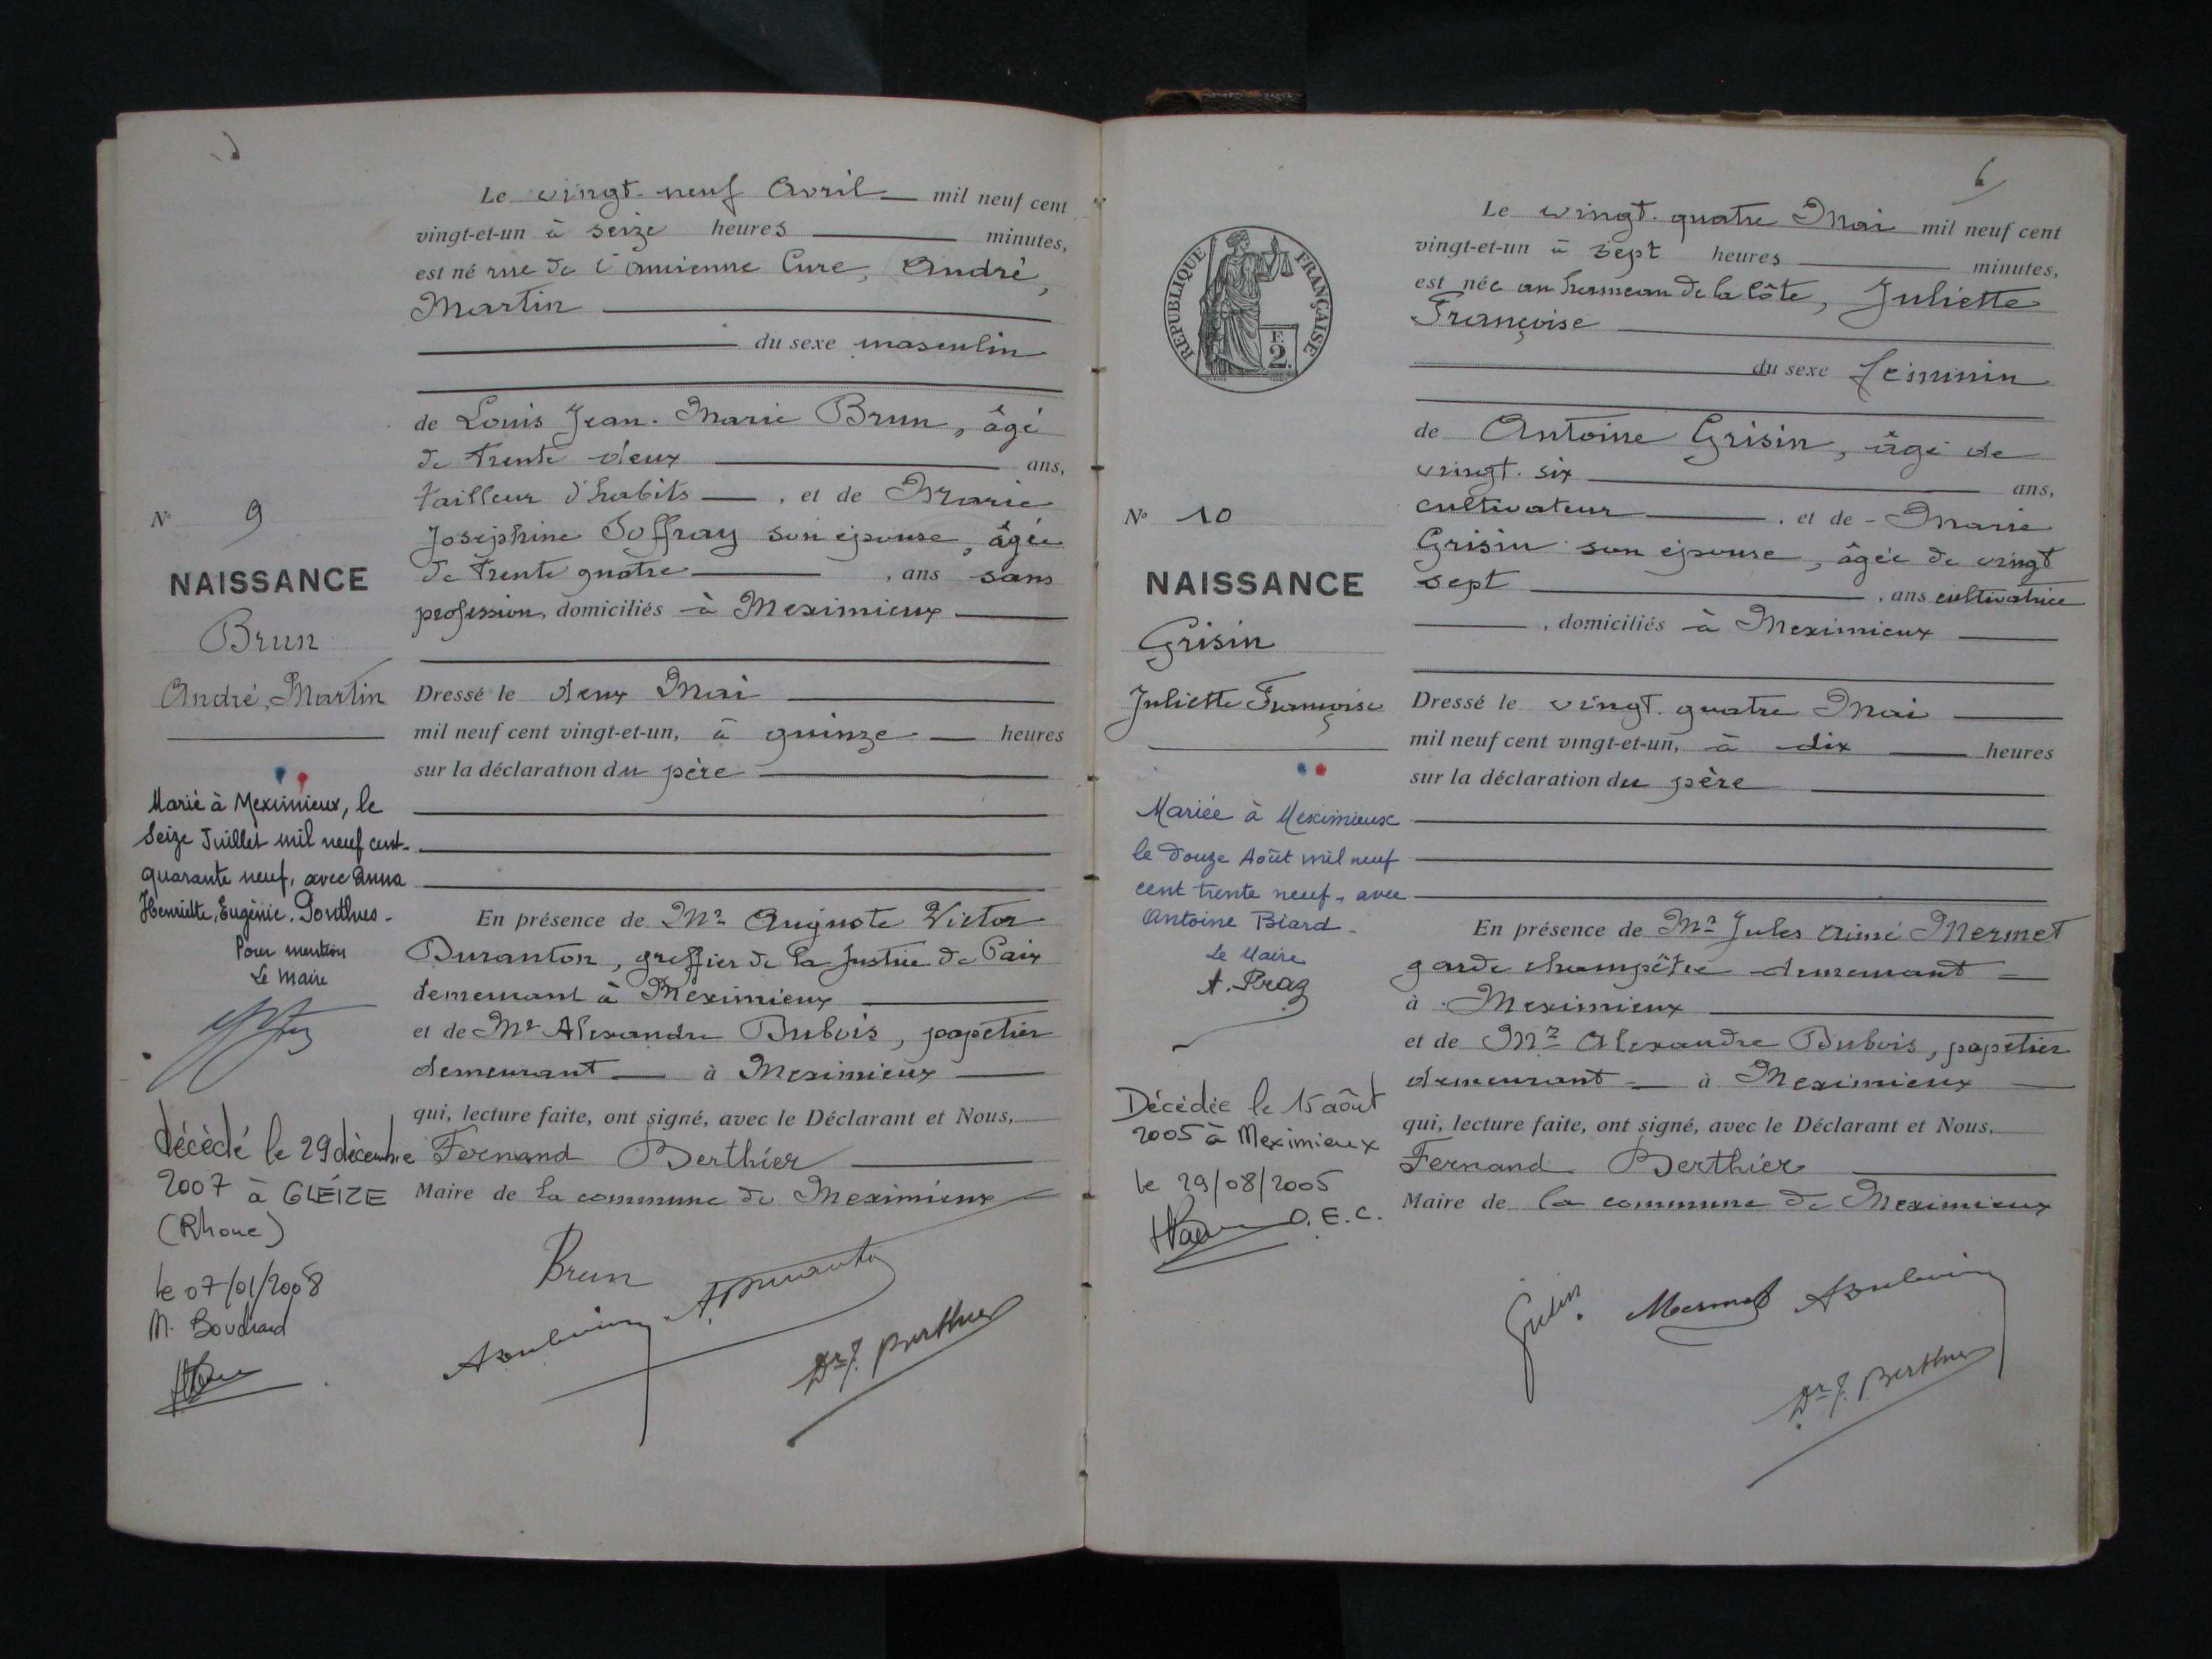 Le vingt-neuf Avril mil neuf cent
vingt-et-un à seize heures minutes,
est né rue de l'ancienne Cure, André,
Martin
du sexe masculin
de Louis Jean-Marie Brun, âgé
de trente deux ans,
tailleur d'habits , et de Marie
Joséphine Joffray son épouse, âgée
de trente quatre , ans sans
profession, domiciliés à Meximieux
N° 9
NAISSANCE
Brun
André, Martin
Dressé le deux Mai
mil neuf cent vingt-et-un, à quinze heures
sur la déclaration du père
En présence de Mr Auguste Victor
Duranton, greffier de la Justice de Paix
demeurant à Meximieux
et de Mr Alexandre Dubois, papetier
demeurant à Meximieux
qui, lecture faite, ont signé, avec le Déclarant et Nous,
Fernand Berthier
Maire de la commune de Meximieux
Brun
Dr f. Berthier
Marié à Meximieux, le
Seize Juillet mil neuf cent-
quarante neuf, avec Anna
Henriette, Eugénie, Ponthus-
Pour mention
Le Maire
décèdé le 29 décembre
2007 à GLEIZE
(Rhone)
le 07/01/2008
M. Bouchard
6
REPUBLIQUE FRANÇAISE
F.
2.
Le vingt-quatre Mai mil neuf cent
vingt-et-un à sept heures minutes,
est née au hameau de la Côte, Juliette
Françoise
du sexe féminin
de Antoine Grisin, âgé de
vingt-six ans,
cultivateur , et de - Marie
Grisin son épouse, âgée de vingt
sept , ans cultivatrice
, domiciliés à Meximieux
N° 10
NAISSANCE
Grisin
Juliette Françoise
Dressé le vingt-quatre Mai
mil neuf cent vingt-et-un, à dix heures
sur la déclaration du père
En présence de Mr Jules Aimé Mermet
garde champêtre demeurant
à Meximieux
et de Mr Alexandre Dubois, papetier
demeurant à Meximieux
qui, lecture faite, ont signé, avec le Déclarant et Nous,
Fernand Berthier
Maire de la commune de Meximieux
Mermet
Dr f. Berthier
Mariée à Meximieux
le douze Août mil neuf
cent trente neuf, avec
Antoine Biard-
Le Maire
A. Praz
Décédée le 15 août
2005 à Meximieux
le 29/08/2005
O.E.C.